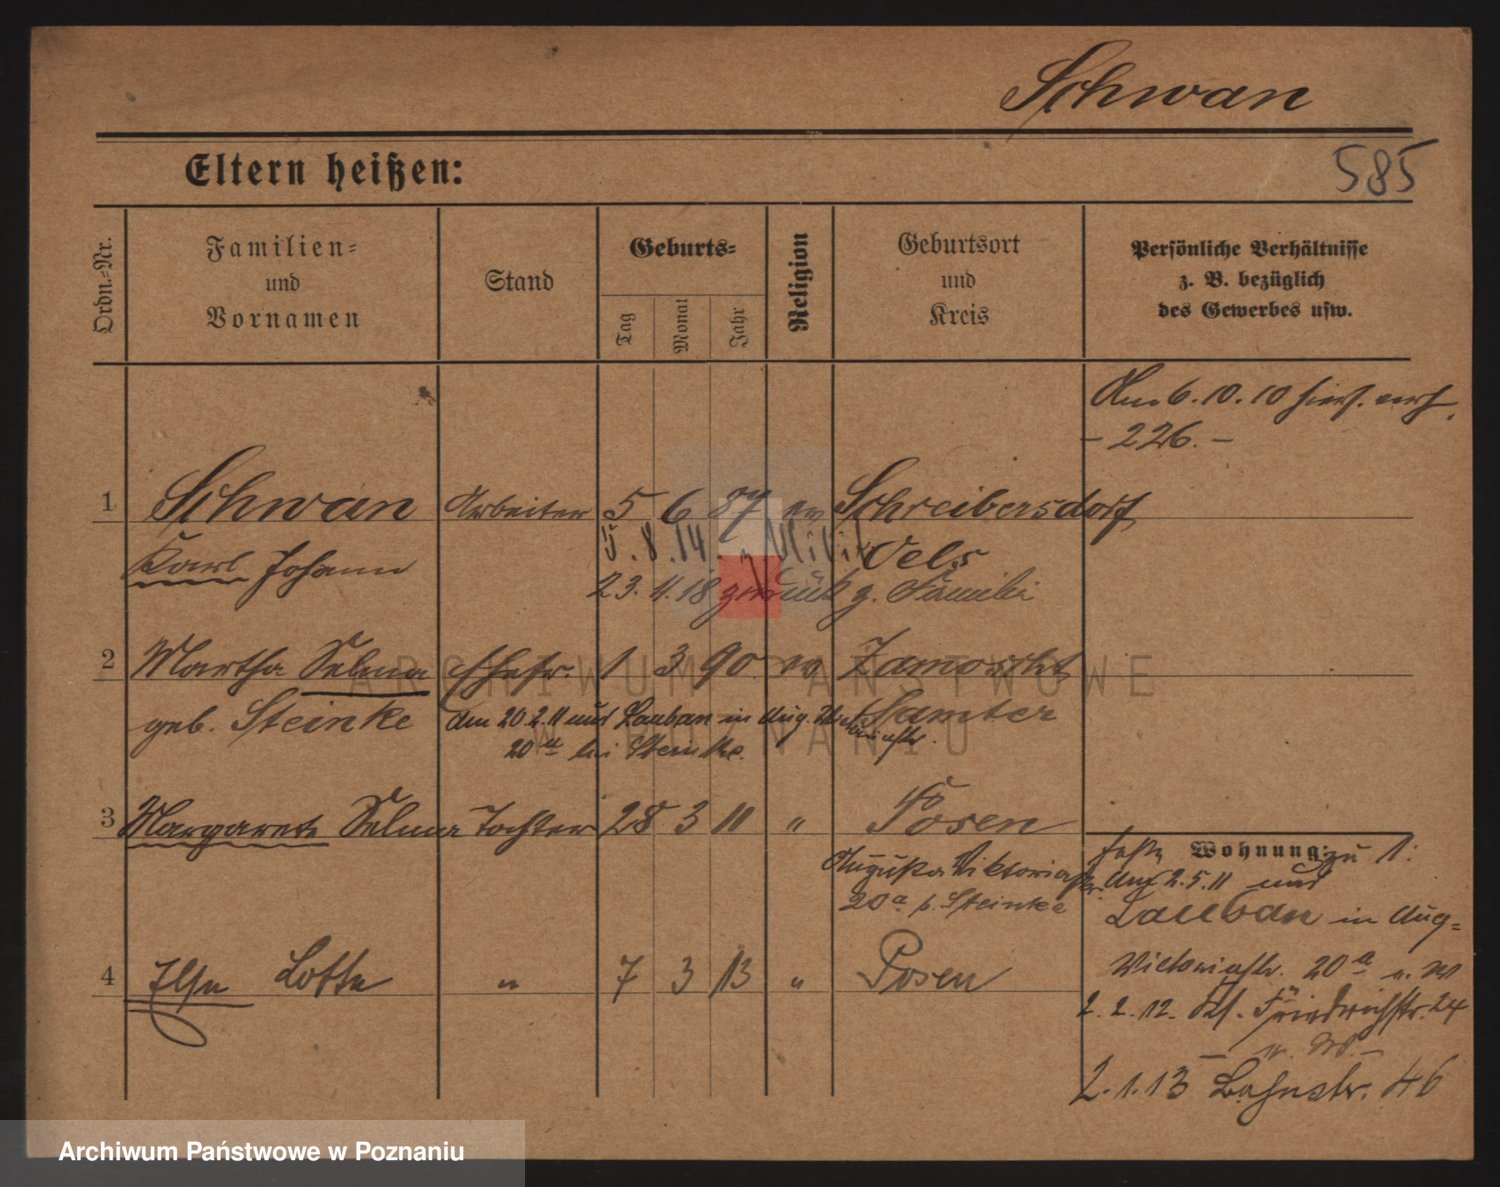 Schwan
Eltern heißen:
585
Ordn.-Nr.
Familien-
und
Vornamen
Stand
Geburts-
Tag
Monat
Jahr
Religion
Geburtsort
und
Kreis
Persönliche Verhältnisse
z. B. bezüglich
des Gewerbes usw.
Am 6.10.10 hies. verh.
- 226. -
1 Schwan Arbeiter 5 6 87 ev Schreibersdorf
Karl Johann 5.8.14. Oels
23.11.18 zurück z. Familie
2 Martha Selma Ehefr. 1 3 90 ev Zamorze
geb. Steinke Samter
am 20.2.11 und Lauban in Aug. Vict
20 a bei Steinke.
3 Margarete Selma Tochter 28 3 11 " Posen
Augusta Viktoriastr.
20a b. Steinke
Wohnung: zu 1:
2.5.11 und
Lauban in Aug-
Victoriastr. 20 a u. W
4 Ilse Lotte " 7 3 13 " Posen
2.2.12. Friedrichstr. 24
u. W. -
2.1.13 Bahnstr. 46
ARCHIWUM PAŃSTWOWE
W POZNANIU
Archiwum Państwowe w Poznaniu